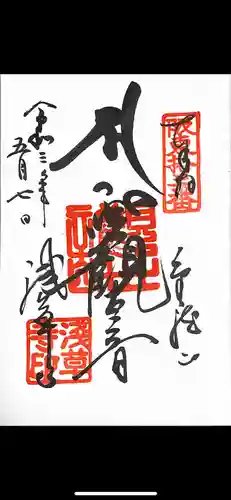 奉拝
坂東拾三番
金龍山
聖観世音
令和三年
五月七日
浅草寺